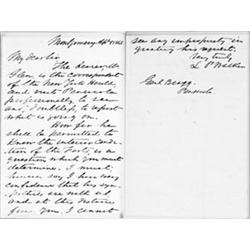 Montgomery
My dear Sir
The bearer, Mr
Glen, is the correspondent
of the New York Herald,
and visits Pensacola
professionally, to see
and, I doubt not, to report
what is going on.
How far he
shall be permitted to
know the interior condi-
tion of the Forts, is a
question which you must
determine. I must,
however, say I have every
confidence that his sym-
pathies are with us
and at this distance
from you I cannot
see any impropriety in
granting his request.
Very truly
L. P. Walker
Genl Bragg
Pensacola